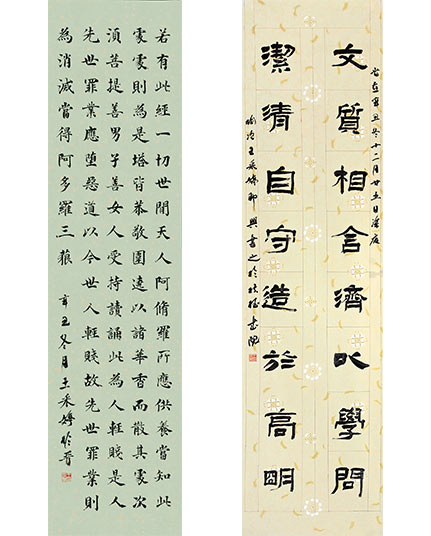 若有此經一切世間天人阿脩羅所應供養當知此
處處則為是塔皆恭敬圍遶以諸華香而散其處次
須菩提善男子善女人受持讀誦此為人輕賤是人
先世罪業應堕惡道以今世人輕賤故先世罪業則
為消滅當得阿多羅三藐
辛丑冬月王采婷
辛丑冬十二月廿五日
文質相含濟以學問
潔清自守造於高明
王采婷即興書之於